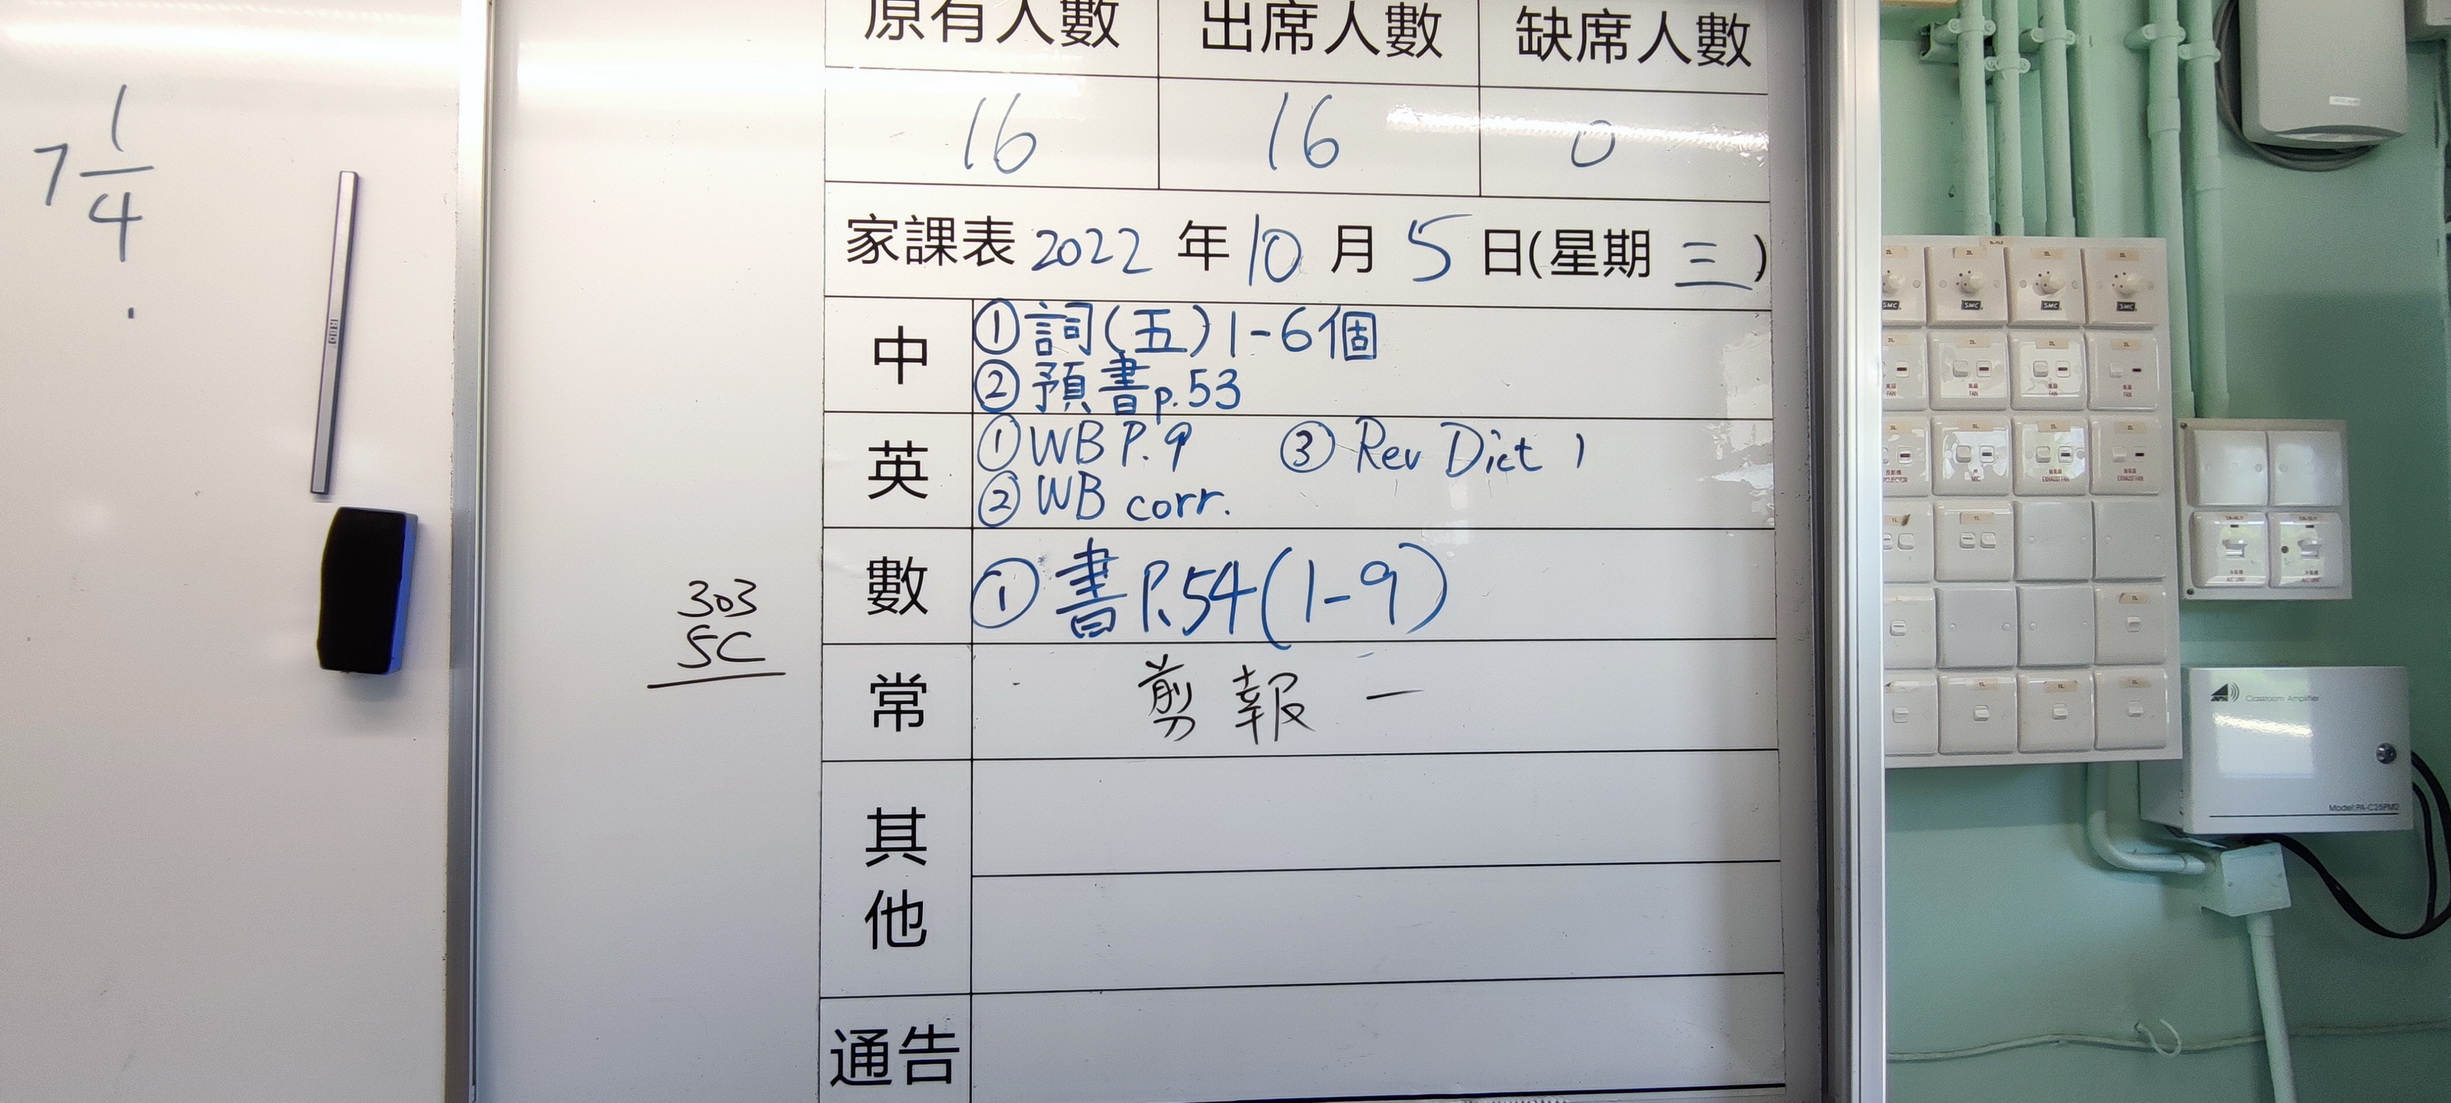 7 1/4
原有人數 出席人數 缺席人數
16 16 0
家課表 2022 年 10 月 5 日(星期 三)
中 ①詞(五)1-6個
②預書p.53
英 ①WB P.9 ③ Rev Dict 1
②WB corr.
數 ①書P.54(1-9)
303
5C
常 剪報一
其他
通告
SMC SMC SMC SMC
FAN FAN FAN FAN
Classroom Amplifier
Model:PA-C25PM2